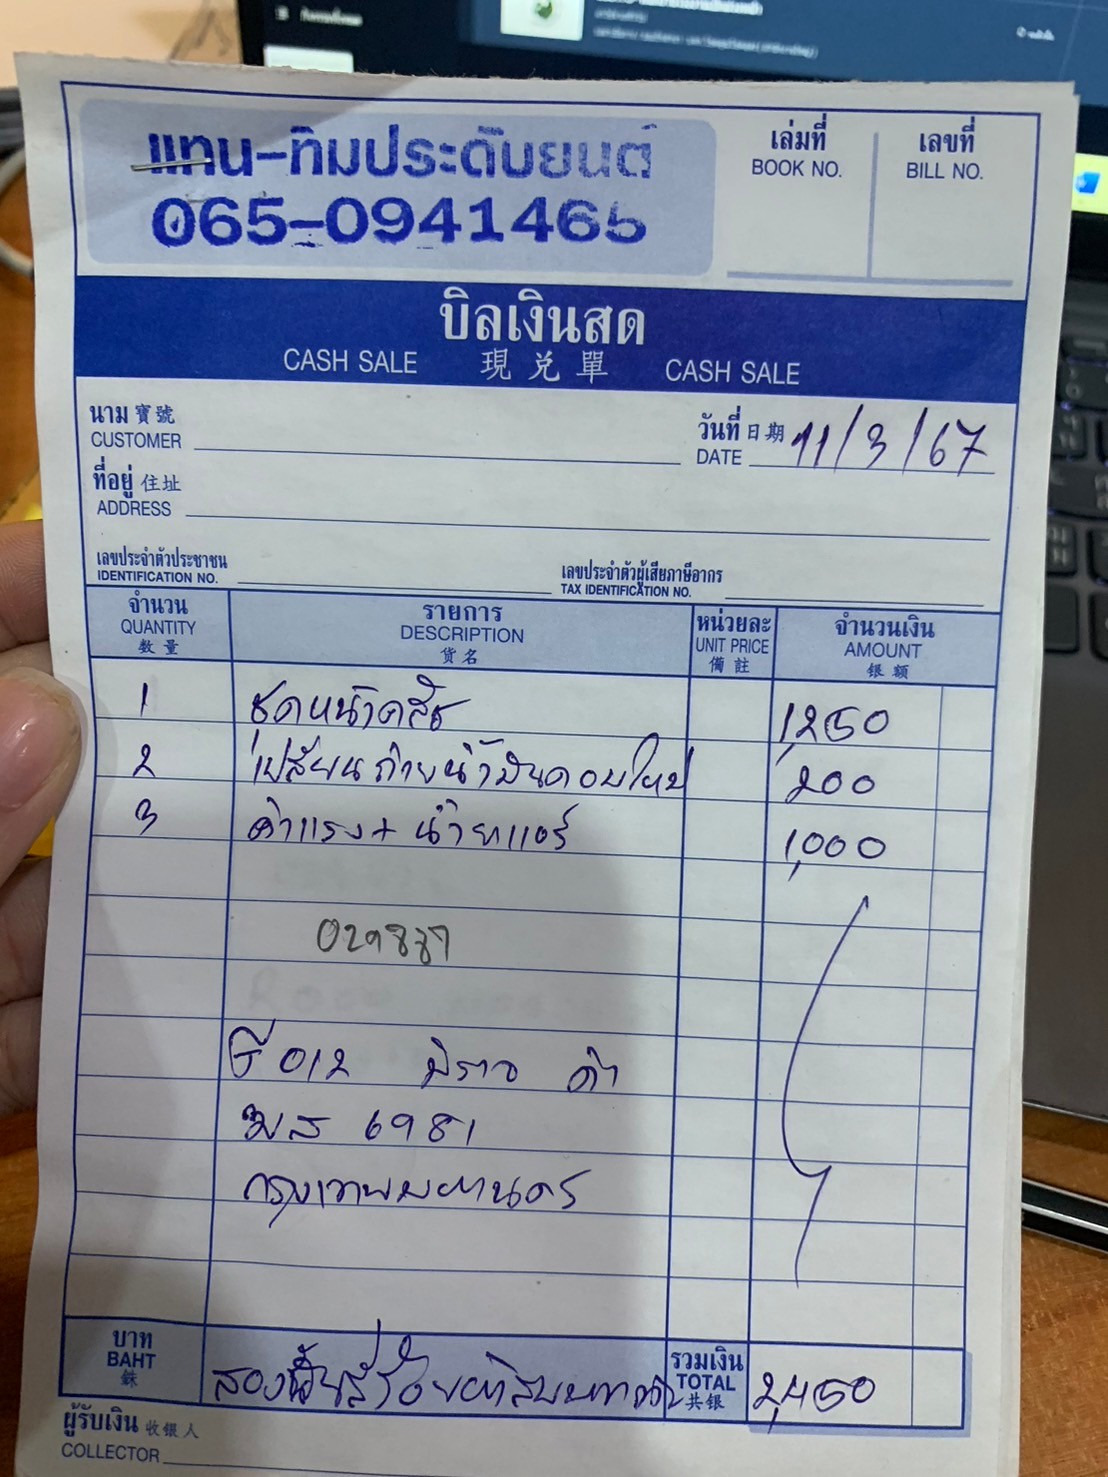 แทน-ทิมประดับยนต์
065-0941465
เล่มที่
BOOK NO.
เลขที่
BILL NO.
บิลเงินสด
CASH SALE 現兌單 CASH SALE
นาม 寶號
CUSTOMER
วันที่ 日期 11/3/67
DATE
ที่อยู่ 住址
ADDRESS
เลขประจำตัวประชาชน
IDENTIFICATION NO.
เลขประจำตัวผู้เสียภาษีอากร
TAX IDENTIFICATION NO.
จำนวน รายการ หน่วยละ จำนวนเงิน
QUANTITY DESCRIPTION UNIT PRICE AMOUNT
数量 货名 備註 银额
1 ชุดหน้าคลัช 1,250
2 เปลี่ยนถ่ายน้ำมัน 200
3 ค่าแรง + น้ำยาแอร์ 1,000
012 มิราจ ดำ
6981
กรุงเทพมหานคร
บาท
BAHT
銖
สองพันสี่ร้อยห้าสิบบาทถ้วน
รวมเงิน
TOTAL 2,450
共银
ผู้รับเงิน 收银人
COLLECTOR